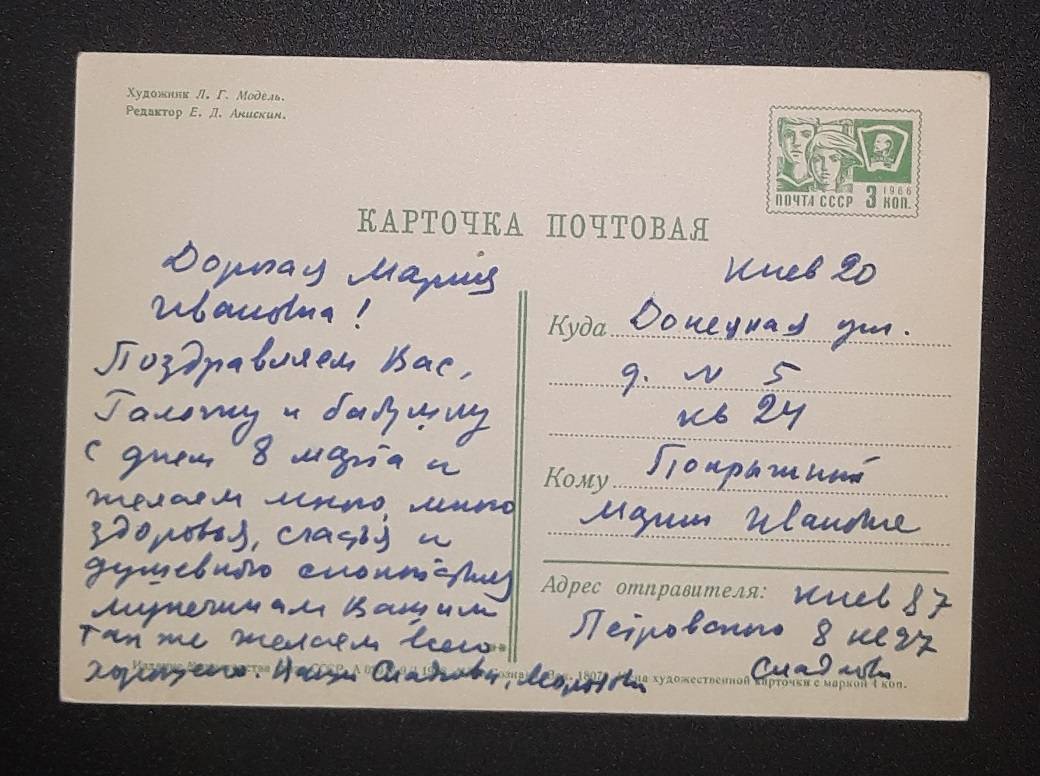 Художник Л. Г. Модель.
Редактор Е. Л. Анискин.
1966
ПОЧТА СССР 3 КОП.
КАРТОЧКА ПОЧТОВАЯ
Дорогая Мария
Ивановна!
Поздравляем Вас,
Галочку и бабушку
с днем 8 марта и
желаем много, много
здоровья, счастья и
душевного спокойствия
мужчинам Вашим
так же желаем всего
хорошего.
Киев 20
Куда Донецкая ул.
д. N 5
кв 24
Кому
Марии Ивановне
Адрес отправителя: Киев 87
Петровского 8 кв 27
на художественной карточки с маркой 4 коп.